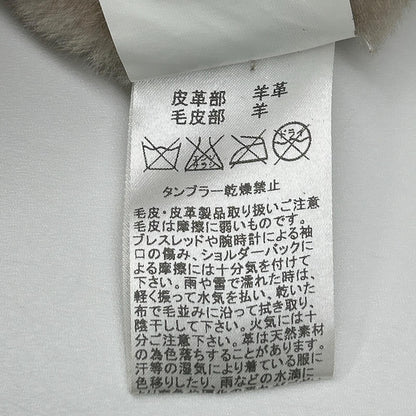 皮革部 羊革
毛皮部 羊
エンソ サラシ
ドライ
タンブラー乾燥禁止
毛皮・皮革製品取り扱いご注意
毛皮は摩擦に弱いものです。
ブレスレッドや腕時計による袖
口の傷み、ショルダーバックに
よる摩擦には十分気を付けて
下さい。雨や雪で濡れた時は、
軽く振って水気を払い、乾いた
布で毛並みに沿って拭き取り、
陰干しして下さい。火気には十
分ご注意下さい。革は天然素材
の為色落ちすることがあります。
汗等の湿気により着ている服に
色移りしたり、雨などの水滴に